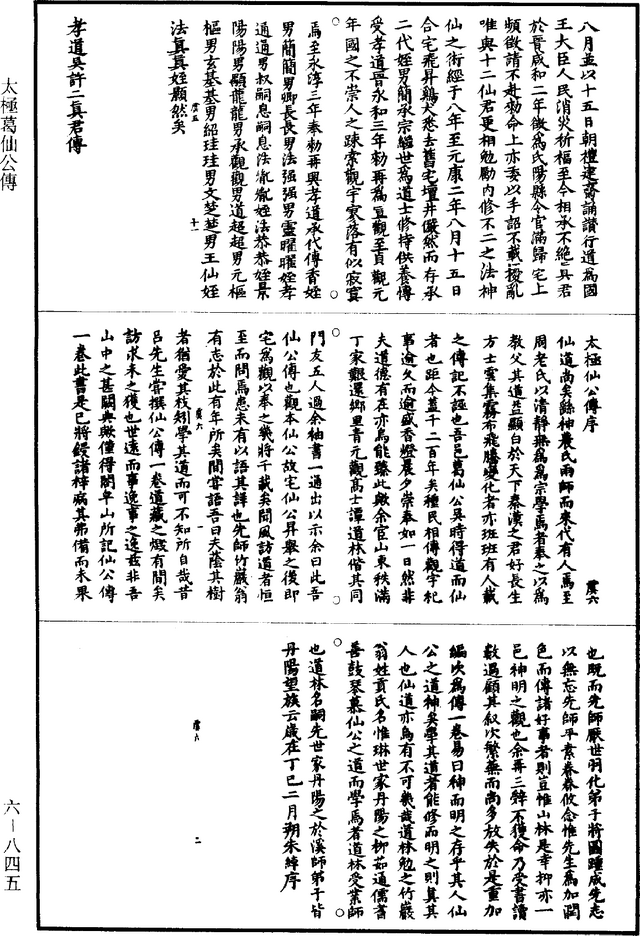 八月並以十五日朝禮建齋誦讀行道為國
王大臣人民消災祈福至今相承不絕真君
於晉咸和二年徵為民陽縣令官滿歸宅上
頻徵請不赴勑命上亦委以手詔不載擾亂
唯與十二仙君更相勉勵內修不二之法神
仙之術經于八年至元康二年八月十五日
合宅飛昇鷄犬悉去舊宅壇井儼然而存承
二代姪男簡承宗繼世為道士修持供養傳
受孝道晉永和三年勑再為亘觀至貞觀元
年國之不崇人之踈索觀宇寥落有似寂寞
焉至永淳三年奉勑再興孝道承代傳香姪
男簡簡男卿長長男法强强男靈曜曜姪孝
通通男叔嗣息嗣息法胤胤姪法恭恭姪景
陽陽男顯龍龍男承觀觀男道超超男元樞
樞男玄基基男紹珪珪男文楚楚男王仙姪
法真真姪顯然矣
虞五
十一
孝道吳許二真君傳
太極葛仙公傳
太極仙公傳序
虞六
仙道尚矣餘神農氏雨師而來代有人焉至
周老氏以清靜無為為宗學焉者奉之以為
教父其道益顯白於天下秦漢之君好長生
方士雲集霧布飛騰變化者亦班班有人載
之傳記不誣也吾邑葛仙公吳時得道而仙
者也距今蓋千二百年矣種民相傳觀宇祀
事逾久而逾盛香燈晨夕崇奉如一日然非
夫道德有在亦烏能臻此歟余官山東秩滿
丁家艱還鄉里青元觀高士譚道林偕其同
門友五人過余袖書一通出以示余曰此吾
仙公傳也觀本仙公故宅仙公昇舉之後即
宅為觀以奉之幾將千載矣聞風訪道者恒
至而問焉患未有以語其詳也先師竹巖翁
有志於此有年所矣間嘗語吾曰夫蔭其樹
虞六
一
者猶愛其枝矧學其道而可不知所自哉昔
呂先生嘗撰仙公傳一卷道藏之燬有間矣
訪求未之獲也世遠而事逸事之逸玆非吾
山中之甚闕典歟僅得閣皁山所記仙公傳
一卷此書是已將鋟諸梓病其弗備而未果
也既而先師厭世羽化弟子將圖踵成先志
以無忘先師平素眷眷攸念惟先生為加潤
色而傳諸好事者則豈惟山林是幸抑亦一
邑神明之觀也余再三辭不獲命乃受書讀
數過顧其叙次繁蕪而尚多放失於是重加
編次為傳一卷易曰神而明之存乎其人仙
公之道神矣學其道者能修而明之則真其
人也仙道亦烏有不可幾哉道林勉之竹巖
翁姓貢氏名惟琳世家丹陽之柳茹通儒書
善鼓琴慕仙公之道而學焉者道林受業師
也道林名嗣先世家丹陽之於溪師弟子皆
丹陽望族云歲在丁巳二月朔朱綽序
虞六
二
六—八四五